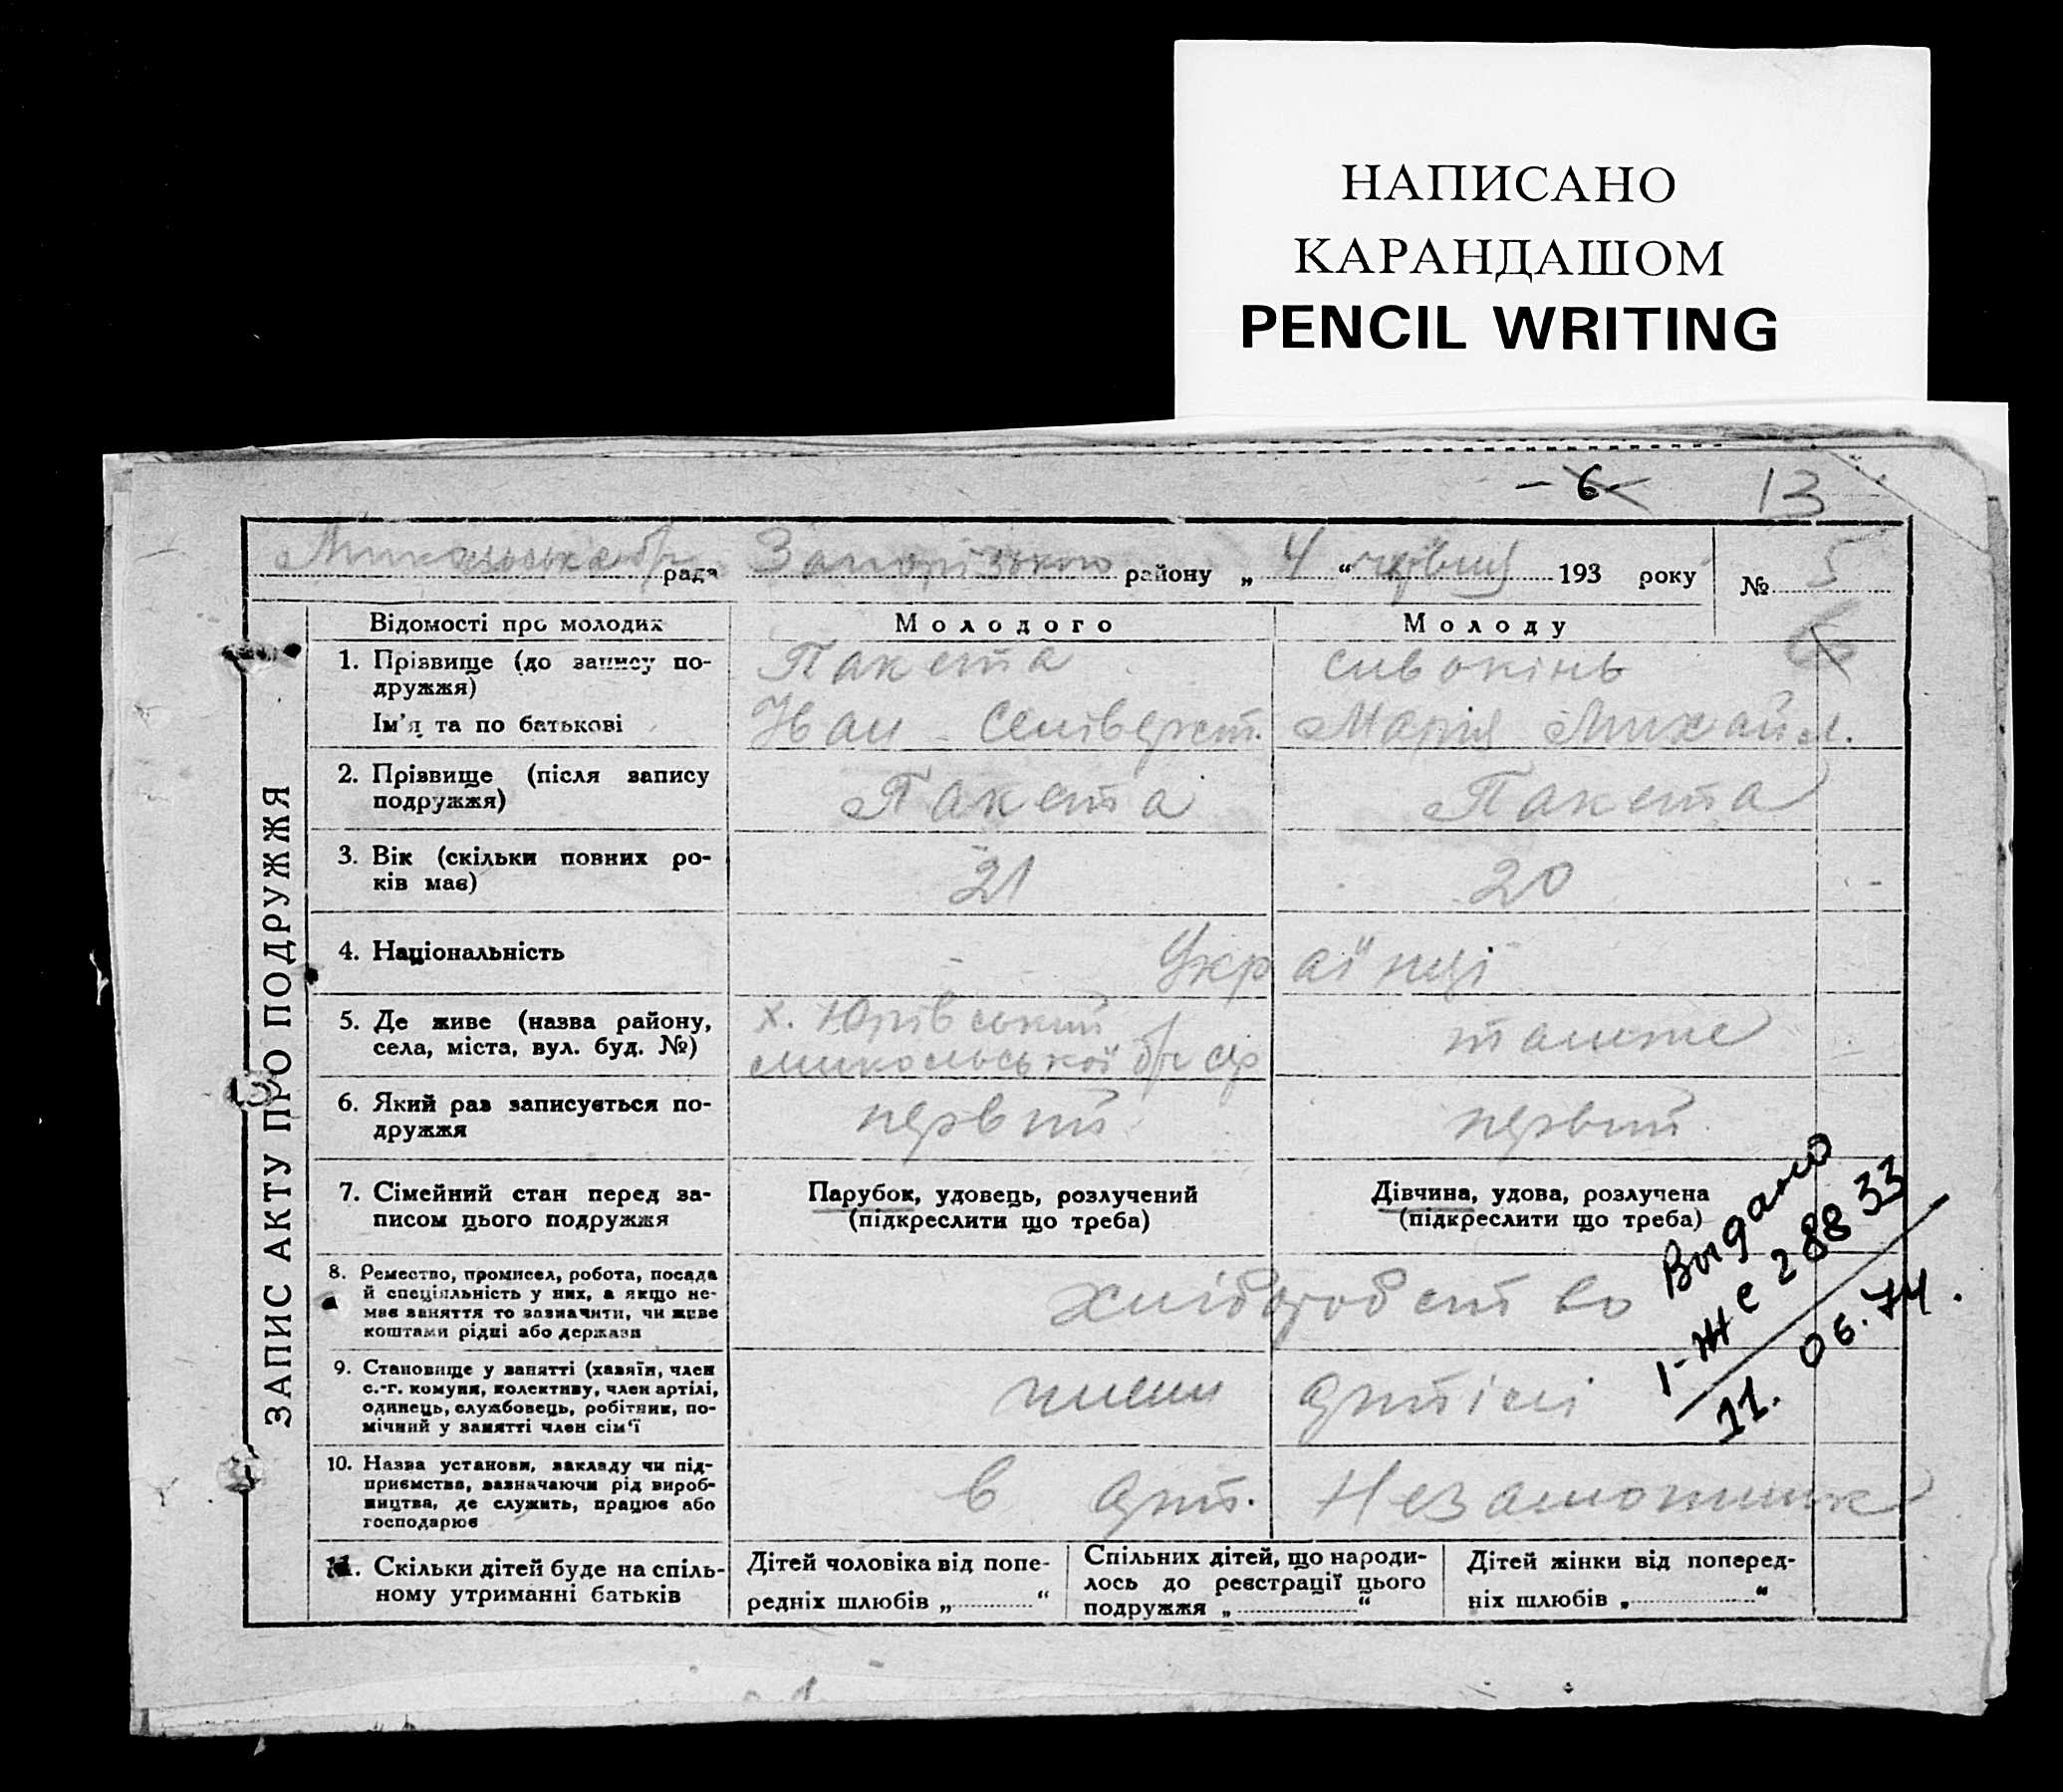 НАПИСАНО
КАРАНДАШОМ
PENCIL WRITING
- 6 - 13
рада Запорізького району „ 4 “ червня 193 року № 5
6
ЗАПИС АКТУ ПРО ПОДРУЖЖЯ
Відомості про молодих Молодого Молоду
1. Прізвище (до запису по- Пакета Сивокінь
дружжя)
Ім'я та по батькові Іван Селіверст. Марія Михайл.
2. Прізвище (після запису Пакета Пакета
подружжя)
3. Вік (скільки повних ро- 21 20
ків має)
4. Національність Українці
5. Де живе (назва району, х. Юрівський
села, міста, вул. буд. №) Микольської б/г с/р также
6. Який раз записується по- первий первий
дружжя
7. Сімейний стан перед за- Парубок, удовець, розлучений Дівчина, удова, розлучена
писом цього подружжя (підкреслити що треба) (підкреслити що треба)
8. Ремество, промисел, робота, посада
й спеціяльність у них, а якщо не- хліборобство
має заняття то зазначити, чи живе
коштами рідні або держави
9. Становище у занятті (хазяїн, член
с.-г. комуни, колективу, член артілі, члени артілі
одинець, службовець, робітник, по-
мічний у занятті член сім'ї
10. Назва установи, закладу чи під-
приємства, зазначаючи рід вироб- в арт. Незаможник
ництва, де служить, працює або
господарює
11. Скільки дітей буде на спіль- Дітей чоловіка від попе- Спільних дітей, що народи- Дітей жінки від поперед-
ному утриманні батьків редніх шлюбів „ “ лось до реєстрації цього ніх шлюбів „ “
подружжя „ “
Выдано
1-ЖС 288 33
11. 06. 74.